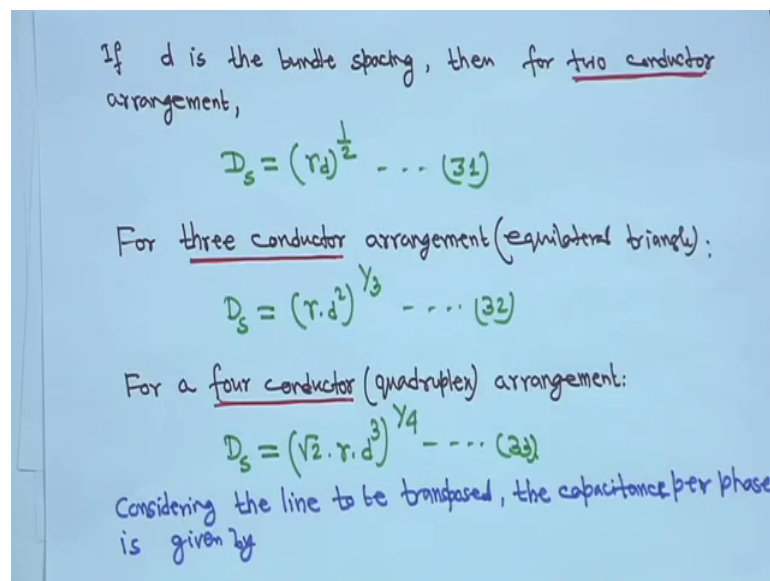 If d is the bundle spacing, then for two conductor
arrangement,
D_s = (rd)^{1/2} - - - - (31)
For three conductor arrangement (equilateral triangle):
D_s = (r.d²)^{1/3} - - - - (32)
For a four conductor (quadruplex) arrangement:
D_s = (√2 . r. d³)^{1/4} - - - - - (33)
Considering the line to be transposed, the capacitance per phase
is given by